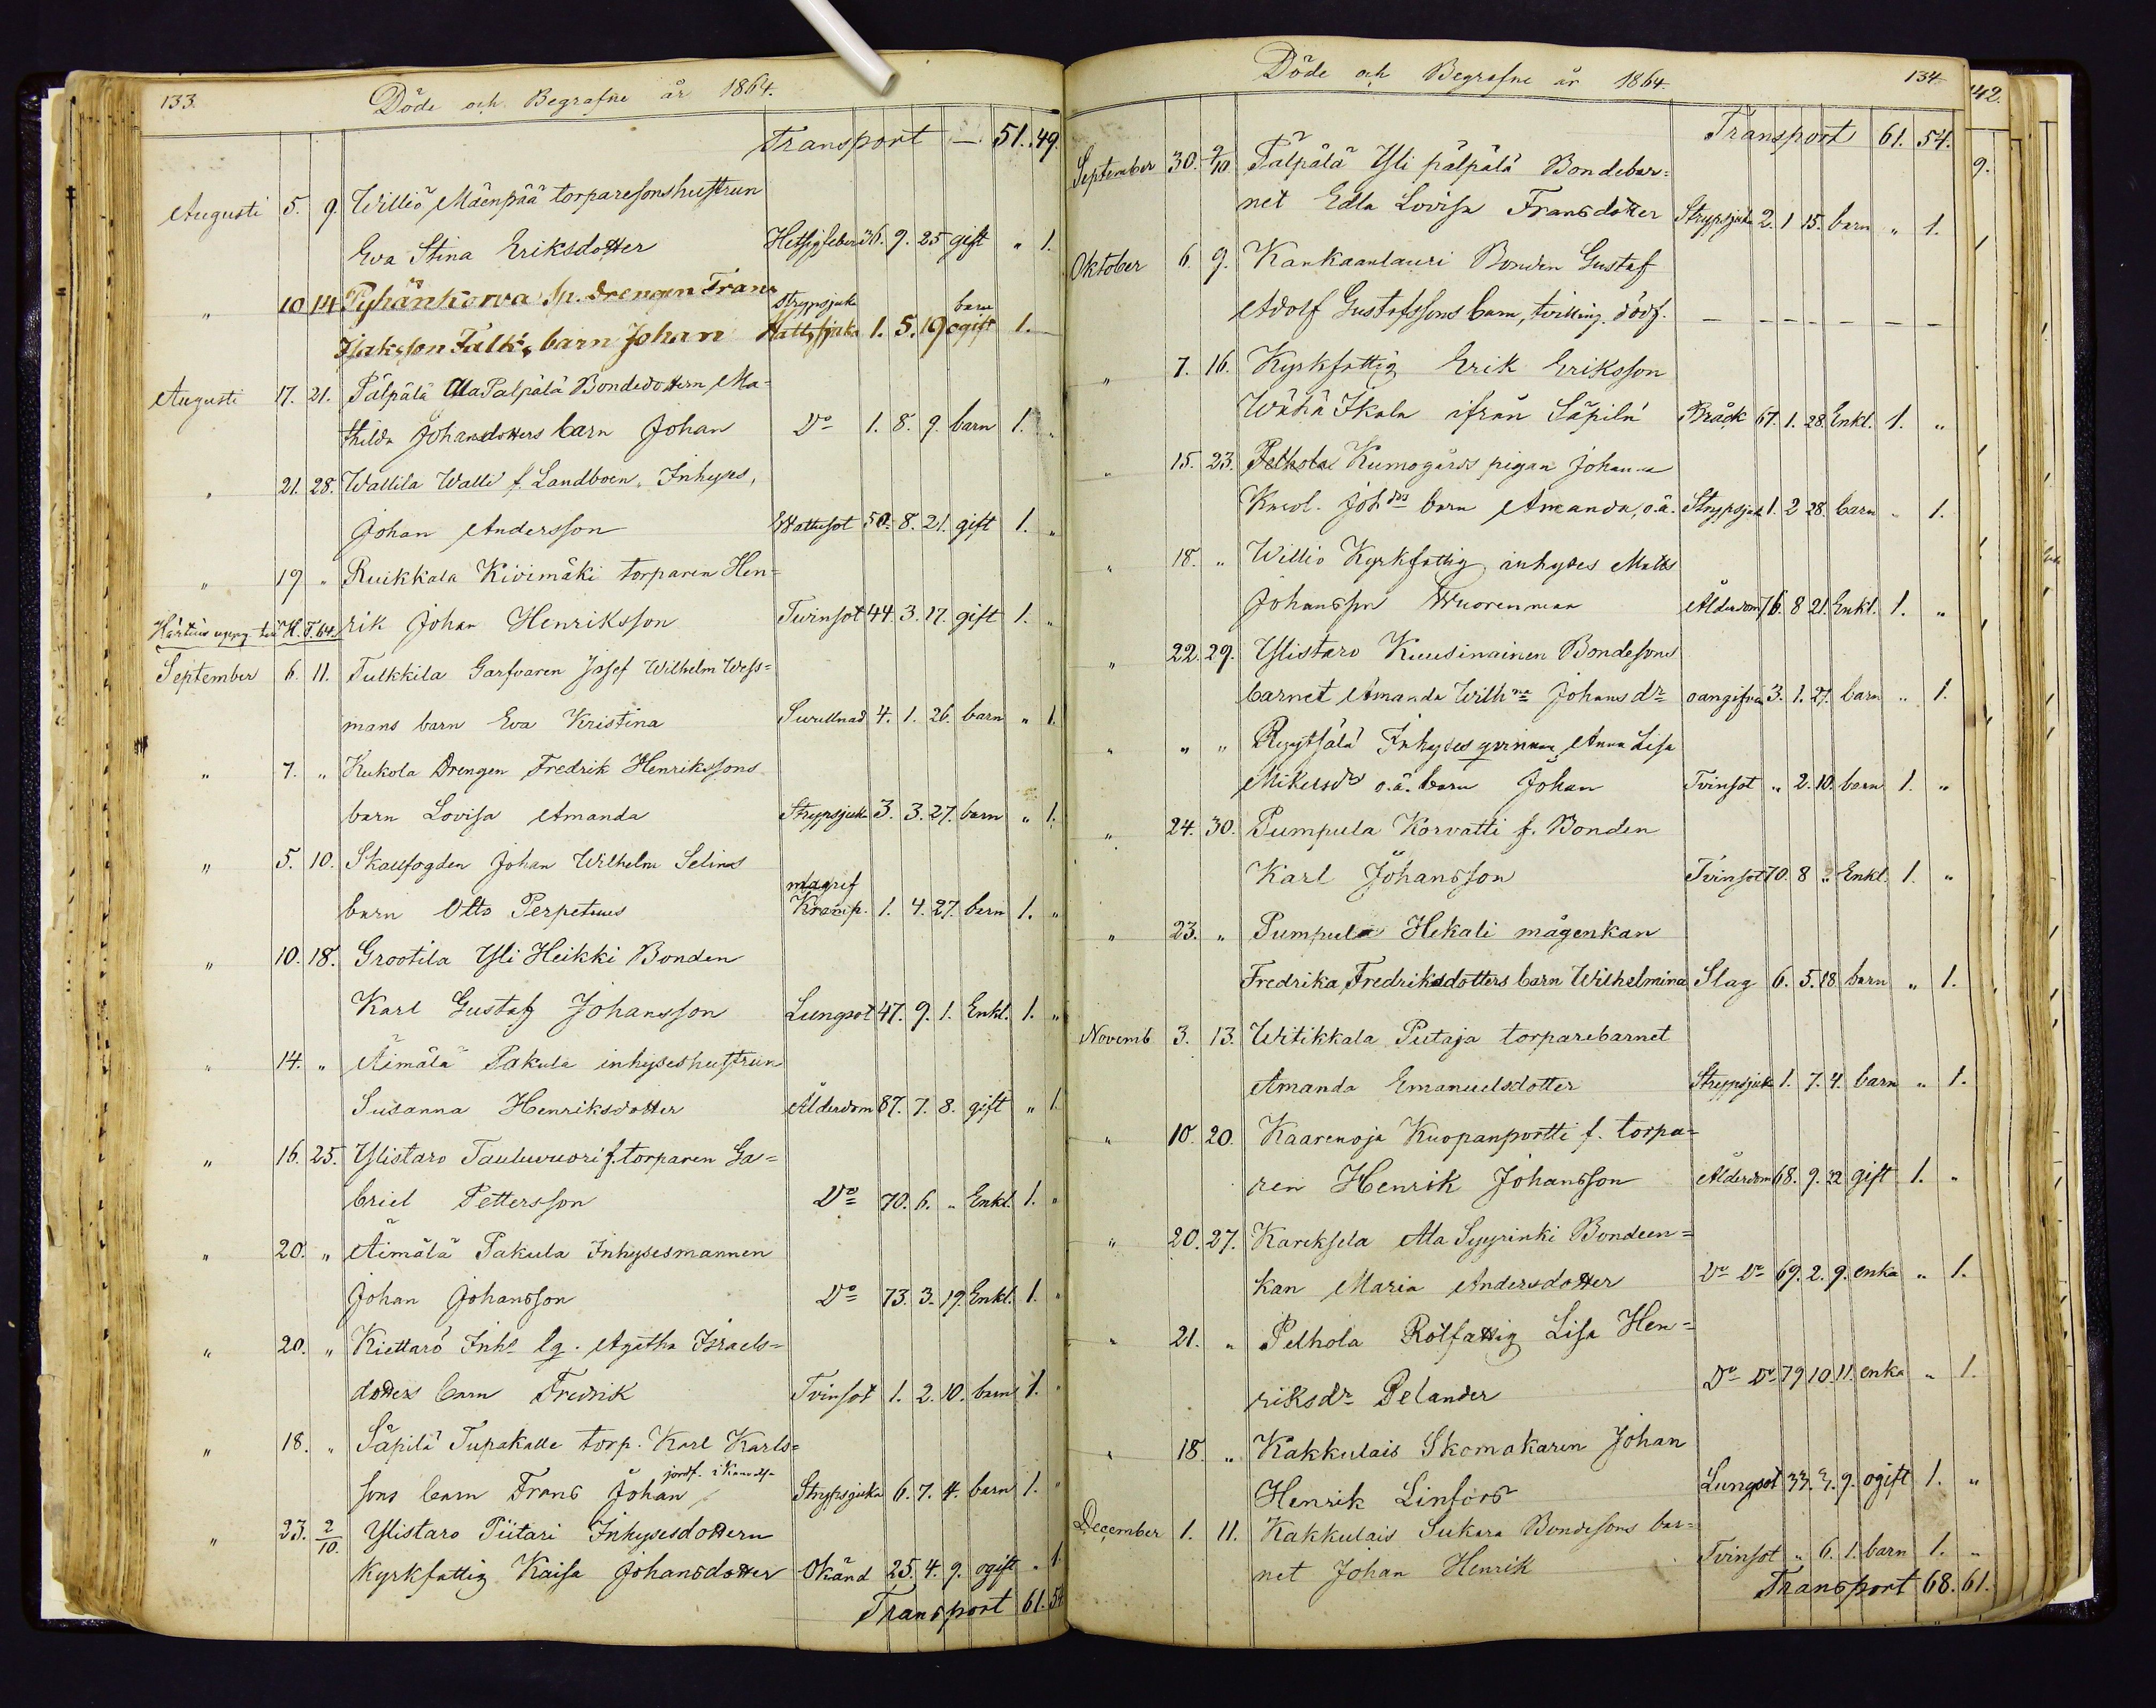 133.
Döde och Begrafne år 1864.
Transport — 51. 49.
Augusti 5. 9. Williö Mäenpää torparesonshustrun
Eva Stina Eriksdotter Hetsigfeber 36. 9. 25 gift " 1.
" 10 14 Pyhänkorva Sp. drengen Frans strypsjuka barn
Isaksson Falk's barn Johan 1. 5. 19 ogift 1.
Augusti 17. 21. Pälpälä Ala Palpälä Bondedottern Ma=
thilda Johansdotters barn Johan Do 1. 8. 9. barn 1. "
" 21. 28. Wallila Walli f. Landboen, Inhyses,
Johan Andersson Wattusot 50. 8. 21. gift 1. "
" 19 " Ruikkala Kivimäki torparen Hen=
rik Johan Henriksson Tvinsot 44. 3. 17. gift 1. "
H. T. 64.
September 6. 11. Tulkkila Garfvaren Josef Wilhelm Wess=
mans barn Eva Kristina Surullnad 4. 1. 26. barn " 1.
" 7. " Kukola Drengen Fredrik Henrikssons
barn Lovisa Amanda Strypsjuka 3. 3. 27. barn " 1.
" 5. 10. Skallfogden Johan Wilhelm Selins
magref
barn Otto Perpetuus Kramp. 1. 4. 27. barn 1. "
" 10. 18. Grootila Yli Heikki Bonden
Karl Gustaf Johansson Lungsot 47. 9. 1. Enkl. 1. "
" 14. " Äimälä Pakula inhyseshustrun
Susanna Henriksdotter Ålderdom 87. 7. 8. gift " 1.
" 16. 25. Ylistaro Tauluvuori f. torparen Ga=
briel Pettersson Do 70. 6. " Enkl. 1. "
" 20. " Äimälä Pakula Inhysesmannen
Johan Johansson Do 73. 3. 19. Enkl. 1. "
" 20. " Kiettaro Inhs lg. Agatha Israels=
dotters barn Fredrik Tvinsot 1. 2. 10. barn 1. "
" 18. " Säpilä Tupakalle torp. Karl Karls=
jordf. i
sons barn Frans Johan Strypsjuka 6. 7. 4. barn 1. "
" 23. 2/10. Ylistaro Piitari Inhysesdottern
Kyrkfattig Kaisa Johansdotter Okänd 25. 4. 9. ogift " 1.
Transport 61. 54
Döde och Begrafne år 1864. 134
Transport 61. 54.
September 30. 2/10 Pälpälä Yli pälpälä Bondebar=
net Edla Lovisa Fransdotter Strypsjuka 2. 1 15. barn " 1.
Oktober 6. 9. Kankaanlauri Bonden Gustaf
Adolf Gustafssons barn, tvilling. dödf. — — — — — — —
" 7. 16. Kyrkfattig Erik Eriksson
Wähä Ikala ifrån Säpilä Bråck 67. 1. 28. Enkl. 1. "
" 15. 23. Kumogårds pigan Johanna
Karol. Johds barn Amanda, o.ä. Strypsjuk 1. 2 28. barn " 1.
" 18. " Willio Kyrkfattig inhyses Matts
Johansson Wuorenmaa Ålderdom 76. 8 21. Enkl. 1. "
" 22. 29. Ylistaro Kuusinainen Bondesons
barnet Amanda Wilhna Johans dr oangifven 3. 1. 27. barn " 1.
" " " Ryytsälä Inhyses qvinnan Anna Lisa
Mikelsdrs o.ä. barn Johan Tvinsot " 2. 10. barn 1. "
" 24. 30. Pumpula Korvatti f. Bonden
Karl Johansson Tvinsot 70. 8 " Enkl. 1. "
" 23. " Pumpula Hekali mågenkan
Fredrika Fredriksdotters barn Wilhelmina Slag 6. 5. 18 barn " 1.
Novemb 3. 13. Witikkala Putaja torparebarnet
Amanda Emanuelsdotter Strypsjuka 1. 7. 4. barn " 1.
" 10. 20. Kaarenoja Kuopanportti f. torpa=
ren Henrik Johansson Ålderdom 68. 9. 22 gift 1. "
" 20. 27. Kareksela Ala Syyrinki Bondeen=
kan Maria Andersdotter Do Do 69. 2. 9. enka " 1.
" 21. " Pelhola Rotfattig Lisa Hen=
riksdr Pelander Do Do 79 10. 11. enka " 1.
" 18. " Kakkulais Skomakaren Johan
Henrik Linfors Lungsot 33. 3. 9. ogift 1. "
December 1. 11. Kakkulais Sukara Bondesons bar=
net Johan Henrik Tvinsot " 6. 1. barn 1. "
Transport 68. 61.
142.
9.